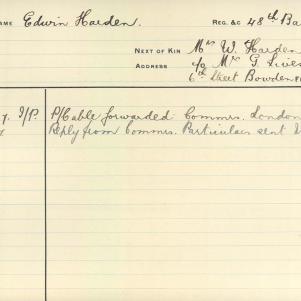 NAME Edwin Harden. REG. &C 48th Ba
NEXT OF KIN Mrs W. Harden
ADDRESS c/o Mrs G. Lives
6th Street Bowden
y. I/P. P/Cable forwarded Commrs. London
Reply from Commrs. Particulars sent